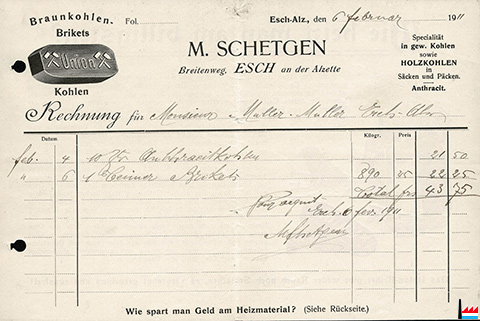 Braunkohlen.
Brikets
Union
Kohlen
Fol.
Esch-Alz., den 6 februar 1911
M. SCHETGEN
Breitenweg, ESCH an der Alzette
Specialität
in gew. Kohlen
sowie
HOLZKOHLEN
in Säcken und Päcken.
Anthracit.
Rechnung für Monsieur Muller-Muller Esch-Alz
Datum Kilogr. Preis
feb. 4 10 Anthracitkohlen 21 50
" 6 1 Brikets 890 25 22 25
Total frs 43 75
Pour acquit
Esch 6 fevr 1911
MSchetgen
Wie spart man Geld am Heizmaterial? (Siehe Rückseite.)